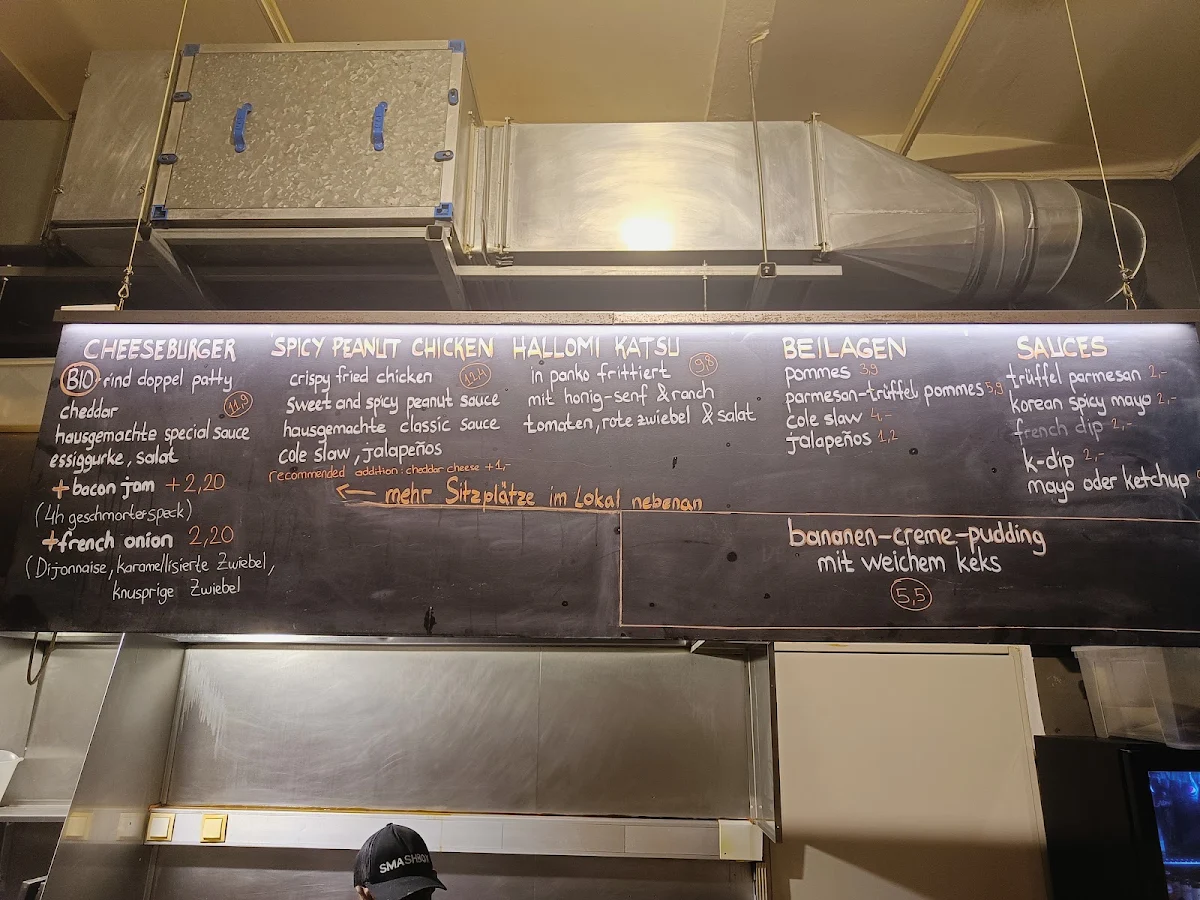 CHEESEBURGER
BIO-rind doppel patty
cheddar
11,9
hausgemachte special sauce
essiggurke, salat
+bacon jam +2,20
(4h geschmorter speck)
+french onion 2,20
(Dijonnaise, karamellisierte Zwiebel,
knusprige Zwiebel
SPICY PEANUT CHICKEN
crispy fried chicken 12,4
sweet and spicy peanut sauce
hausgemachte classic sauce
cole slaw, jalapeños
recommended addition: cheddar cheese +1,-
HALLOMI KATSU
in panko frittiert 9,8
mit honig-senf & ranch
tomaten, rote zwiebel & salat
← mehr Sitzplätze im Lokal nebenan
BEILAGEN
pommes 3,9
parmesan-trüffel pommes 5,9
cole slaw 4,-
jalapeños 1,2
SAUCES
trüffel parmesan 2,-
korean spicy mayo 2,-
french dip 2,-
k-dip 2,-
mayo oder ketchup
bananen-creme-pudding
mit weichem keks
5,5
SMASHBOX